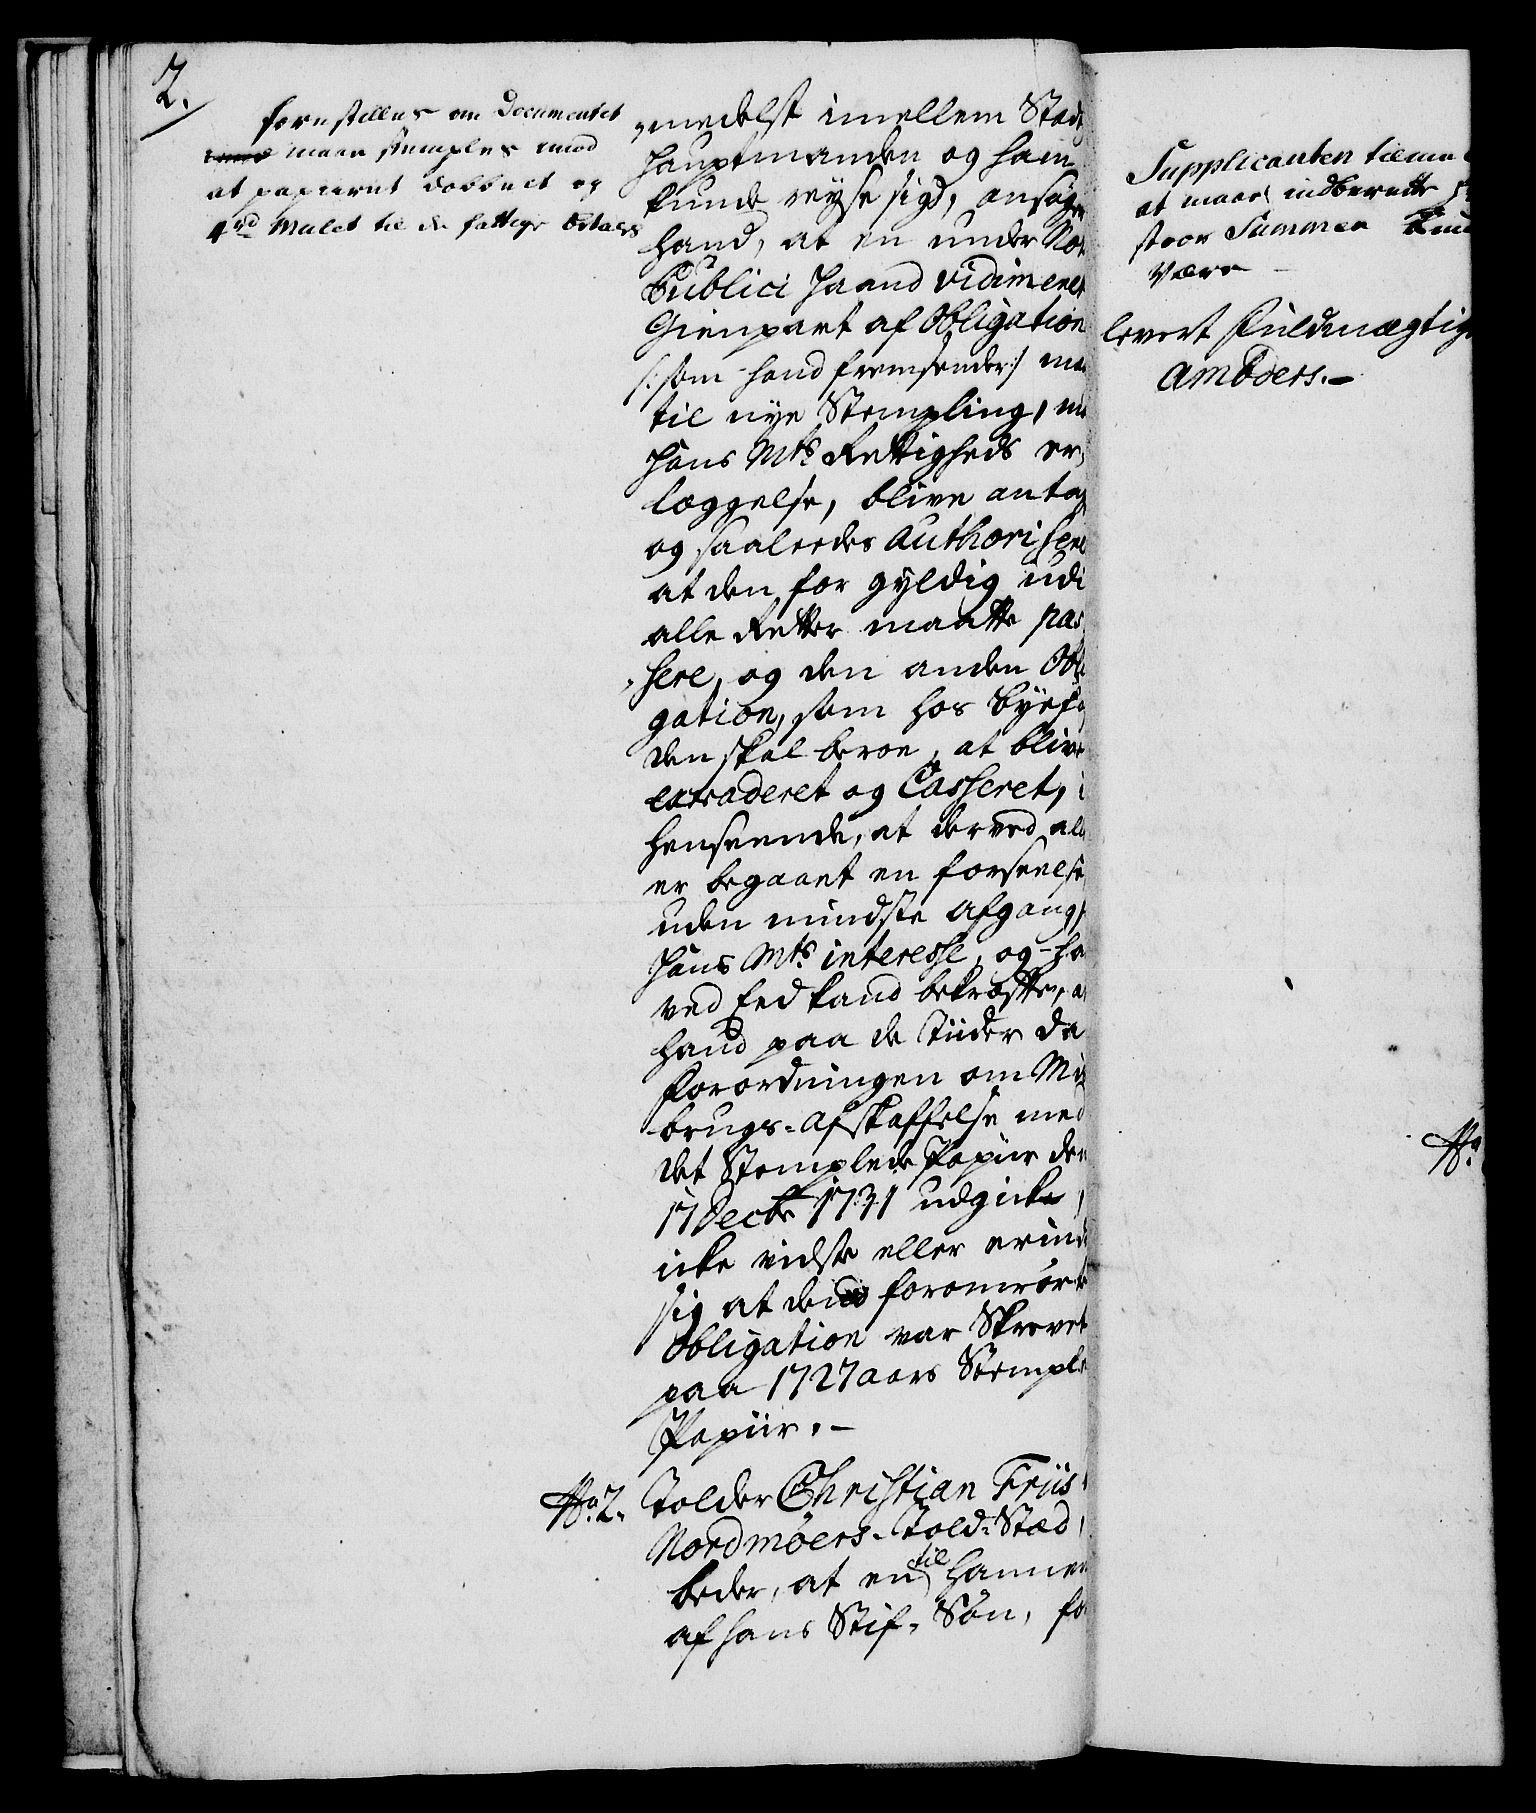 2.
forestilles om Documentet
maae stemples imod
at papiiret dobbelt og
4 rd Mulct til de fattige betales
medelst imellem Stads
Hauptmanden og ham
kunde reyse sig, ansøger
hand, at en under Not
Publici Haand vidimeret
Gienpart af Obligation
/: som hand fremsender :/ maa
til nye Stempling, med
Hans Mts Rettigheds er-
læggelse, blive antag
og saaledes authorisere
at den for gyldig udi
alle Retter maatte pas-
sere, og den anden Obli
gation, som hos Byefog
den skal beroe, at blive
extraderet og Casseret, i
henseende, at derved all
er begaaet en forseelse
uden mindste afgang
Hans Mts interesse, og ha
ved Eed kand bekræfte, a
hand paa de Tiider da
Forordningen om Mis
brugs-Afskaffelse med
det Stemplede Papiir den
17 Decbr 1731 udgick,
icke vidste eller erind
sig at den foromrørte
Obligation var Skrevet
paa 1727 aars Stemple
Papiir.-
No 2.
Tolder Christian Friis
Nordmøers-Told-Sted,
beder, at en til Hannem
af hans Stif-Søn, fo
Supplicanten
at maae indberette
stoor Summen
være
levert Fuldmægtig
Ambders.-
No